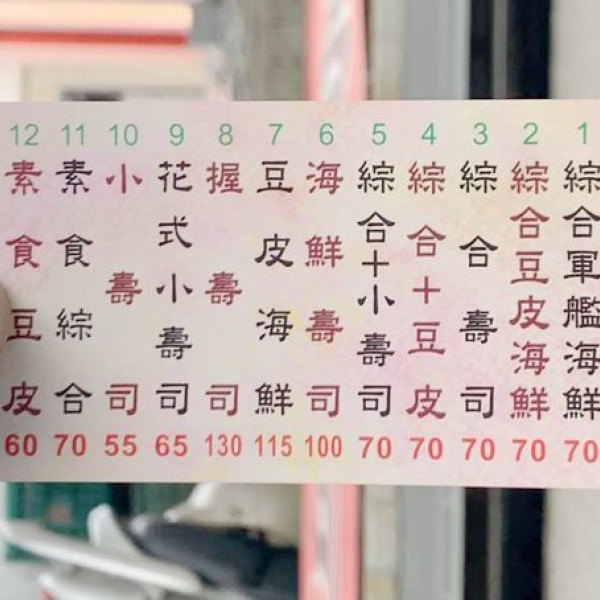 1 綜合軍艦海鮮 70
2 綜合豆皮海鮮 70
3 綜合壽司 70
4 綜合十豆皮 70
5 綜合十小壽司 70
6 海鮮壽司 100
7 豆皮海鮮 115
8 握壽司 130
9 花式小壽司 65
10 小壽司 55
11 素食綜合 70
12 素食豆皮 60